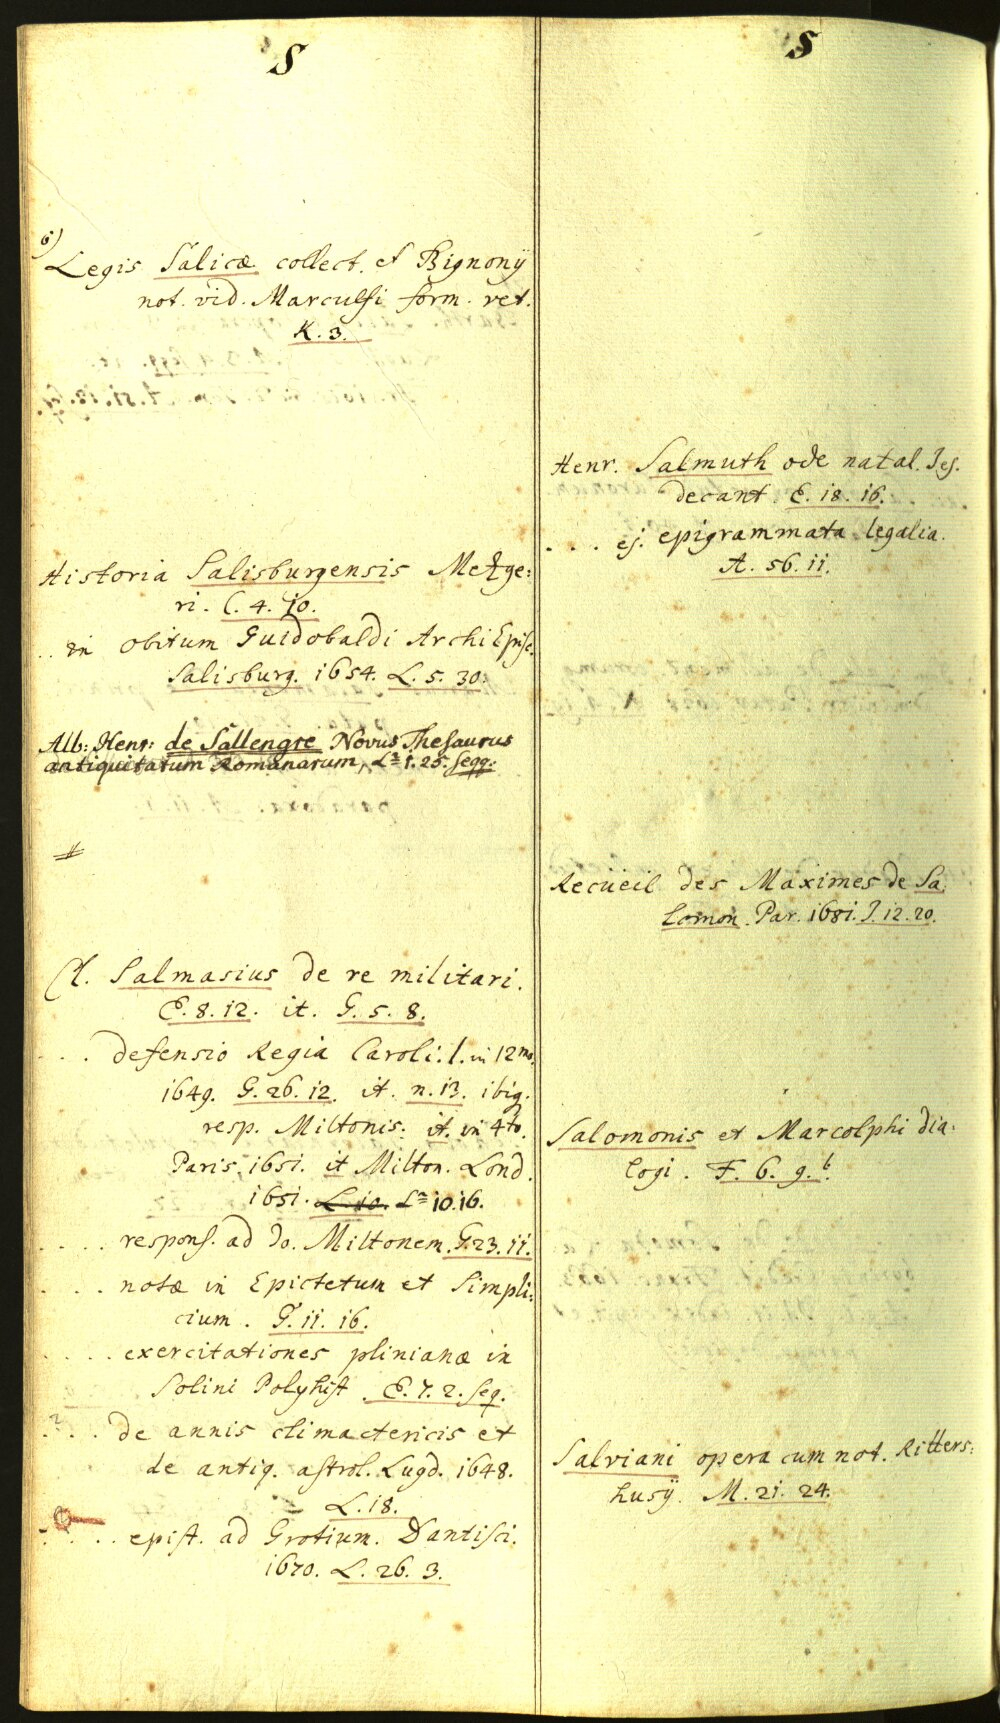 S
6)
Legis Salicæ collect. et Bignonÿ
not. vid. Marculfi form. vet.
K. 3.
Historia Salisburgensis Metzge:
ri. C. 4. 10.
.. in obitum Guidobaldi ArchiEpisc.
Salisburg. 1654. L. 5. 30.
Alb: Henr: de Sallengre Novus Thesaurus
antiquitatum Romanarum, La 1. 25. seqq:
#
Cl. Salmasius de re militari.
E. 8. 12. it. G. 5. 8.
. . . defensio Regia Caroli. I. in 12mo.
1649. G. 26. 12. it. n. 13. ibiq.
resp. Miltonis. it. in 4to.
Paris, 1651. it Milton. Lond.
1651. L. 10. La 10. 16.
. . . . respons. ad Jo. Miltonem. G. 23. 11.
. . . notæ in Epictetum et Simpli:
cium. G. 11. 16.
. . . . exercitationes plinianæ in
Solini Polyhist. E. 7. 2. seq.
. ? . . de annis climactericis et
de antiq. astrol. Lugd. 1648.
L. 18.
. . . . epist. ad Grotium. Dantisci.
1670. L. 26. 3.
S
Henr. Salmuth ode natal. Jes.
decant. E. 18. 16.
. . . ej. epigrammata legalia.
A. 56. 11.
Recüeil des Maximes de Sa
lomon. Par. 1681. J. 12. 20.
Salomonis et Marcolphi dia:
logi. F. 6. 9. b.
Salviani opera cum not. Ritters:
husÿ. M. 21. 24.